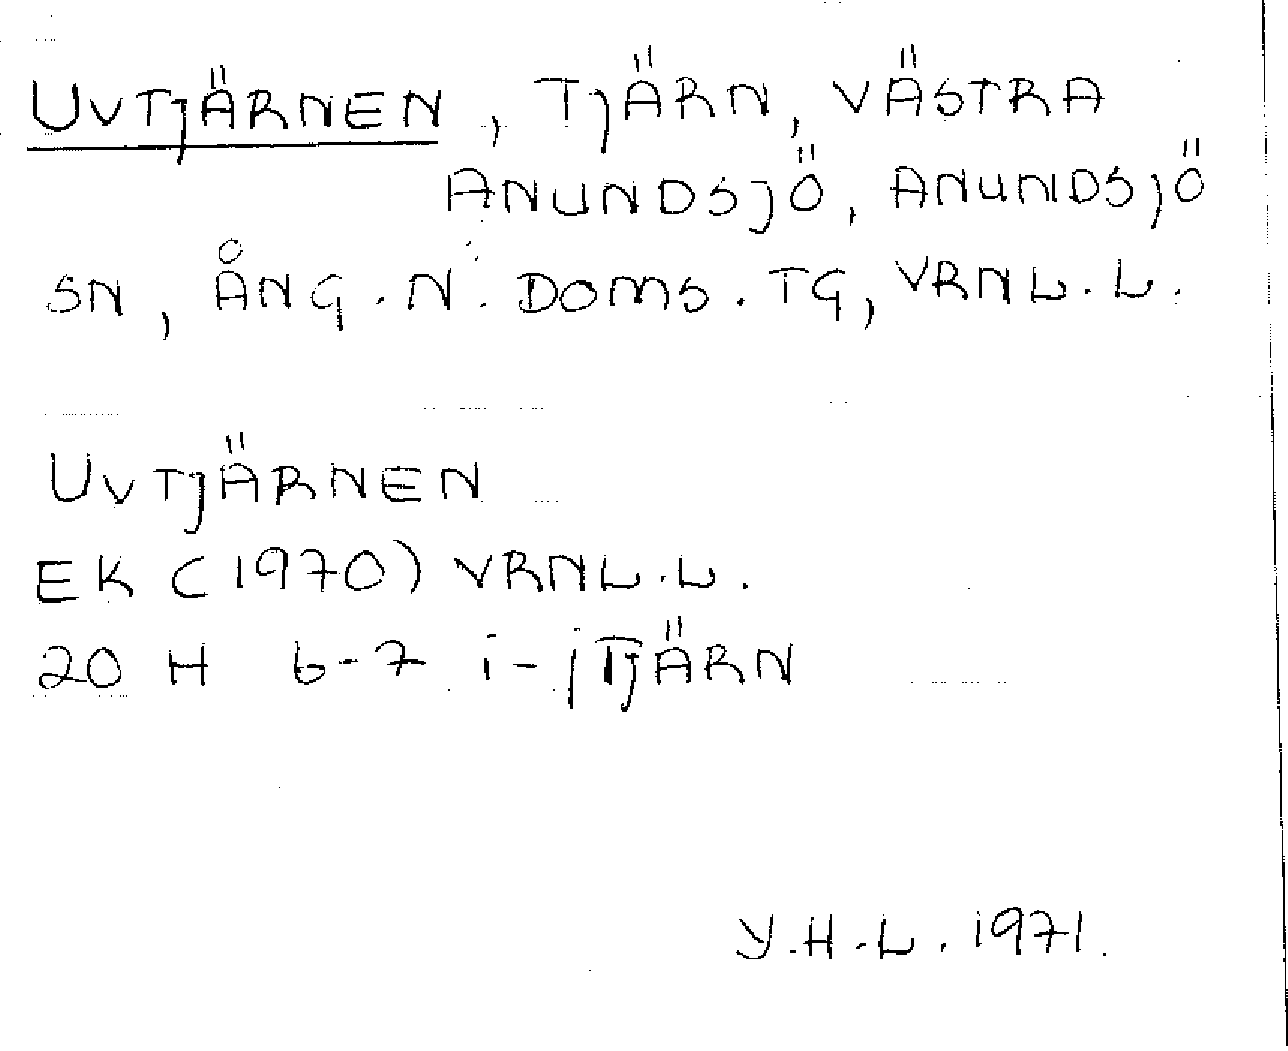 UVTJÄRNEN, TJÄRN, VÄSTRA
ANUNDSJÖ, ANUNDSJÖ
SN, ÅNG. N. DOMS. TG, VRNL. L.
UVTJÄRNEN
EK (1970) VRNL. L.
20 H 6-7 i-j TJÄRN
Y.H.L. 1971.